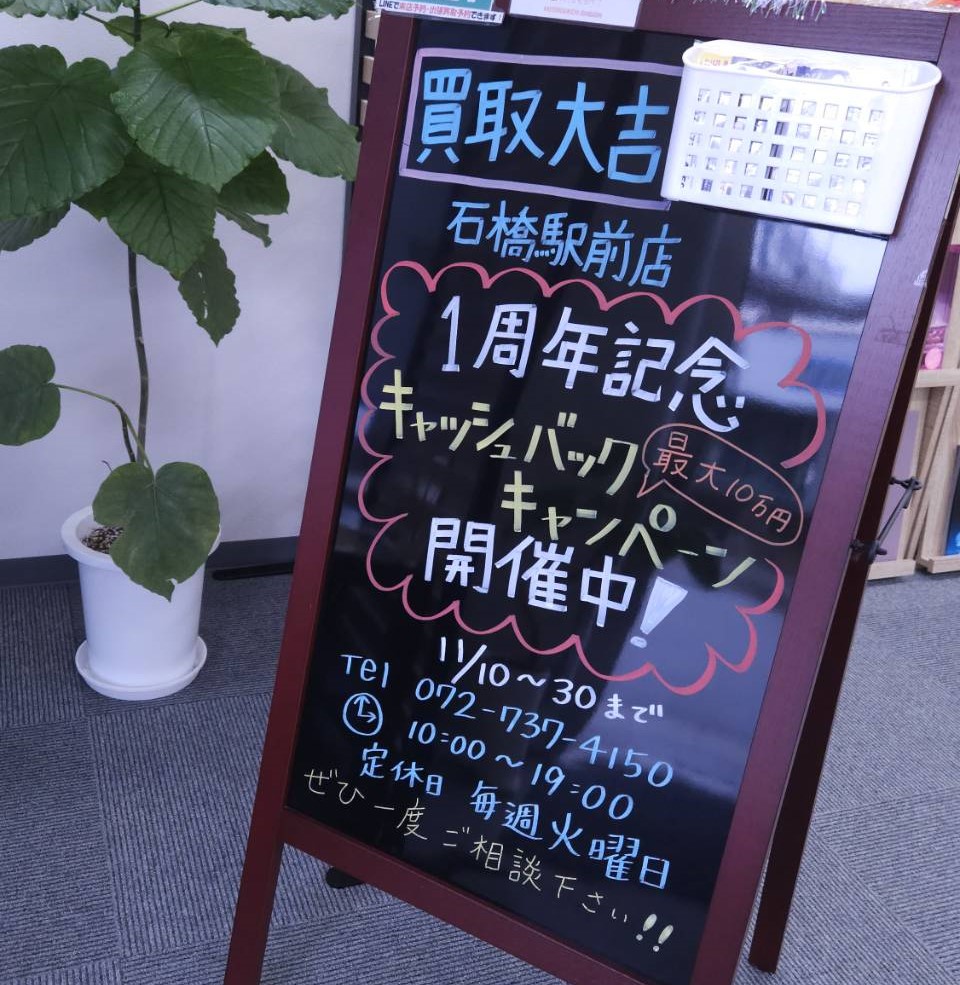 LINEで来店予約・出張買取予約できます!
買取大吉
石橋駅前店
1周年記念
キャッシュバック
最大10万円
キャンペーン
開催中!
11/10〜30まで
Tel 072-737-4150
10:00〜19:00
定休日 毎週火曜日
ぜひ一度ご相談下さい!!